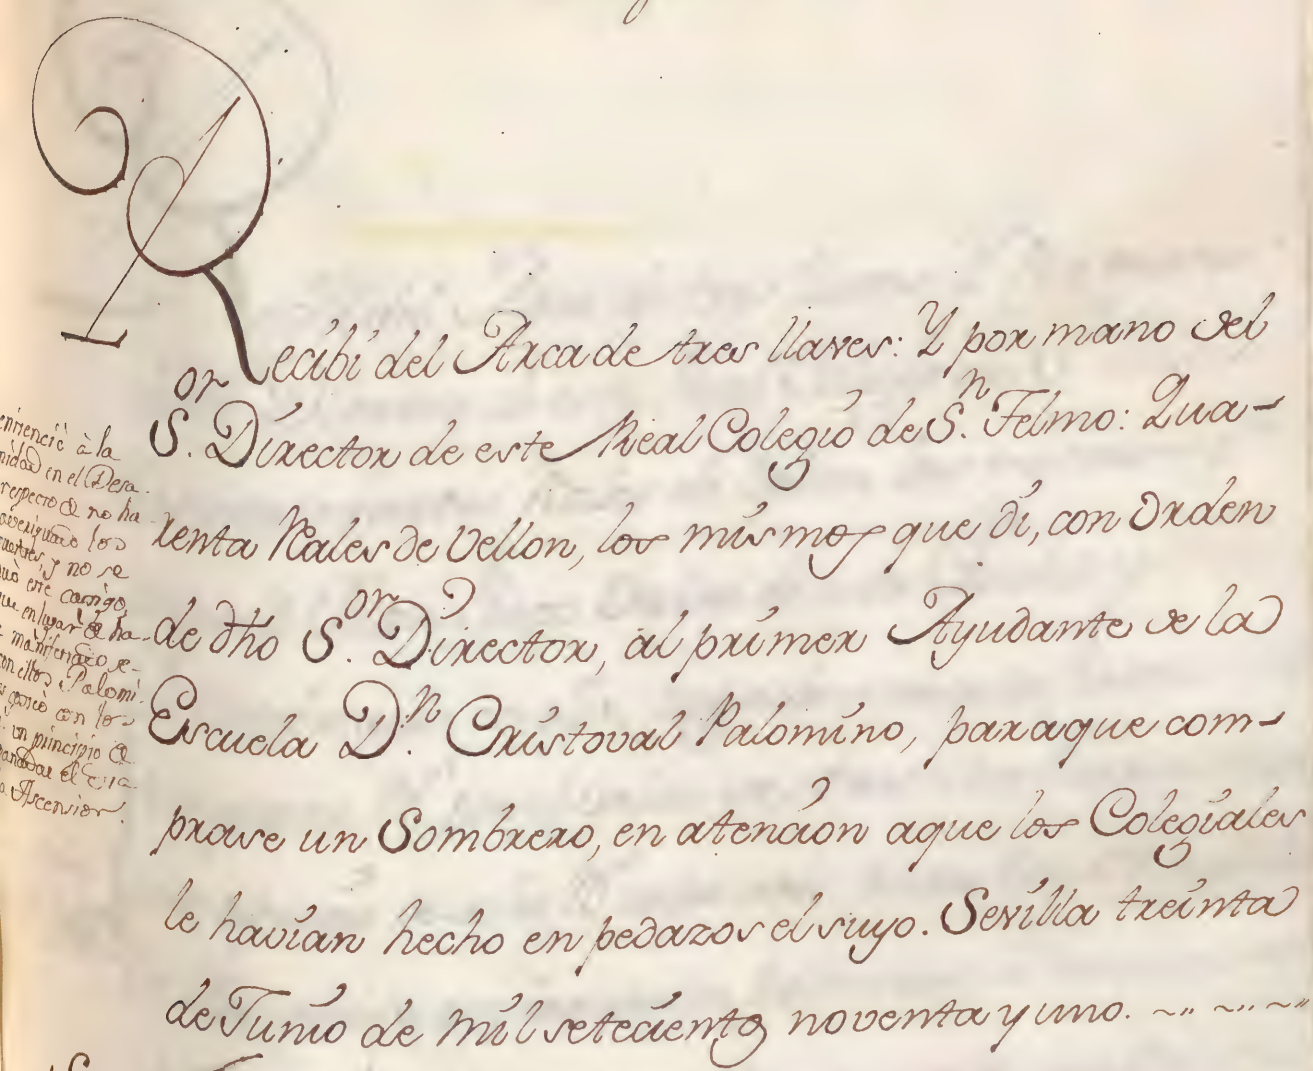 Recibi del Arca de tres llaves: Y por mano del
S.or Director de este Real Colegio de S.n Telmo: Qua-
renta Reales de Vellon, los mismos que di, con Orden
de dho S.or Director, al primer Ayudante de la
Escuela D.n Cristoval Palomino, para que com-
prase un Sombrero, en atencion aque los Colegiales
le havian hecho en pedazos el suyo. Sevilla treinta
de Junio de mil setecientos noventa y uno.
à la
en el Desa-
respecto de no ha-
los
y no se
este castigo,
en lugar de ha-
se-
con ellos Palomi-
con los
un principio de
el
Ascensior.